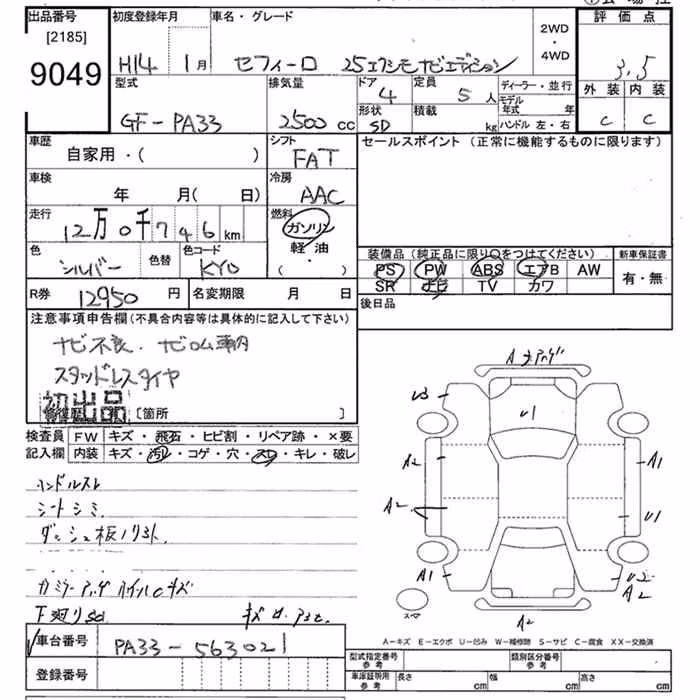 出品番号 初度登録年月 車名・グレード 2WD・4WD 評価点
[2185]
9049
H14 1月 セフィーロ 25エクシモナビエディション 3.5
型式 排気量 ドア 4 定員 5人 ディーラー・並行 外装 内装
GF-PA33 2500cc 形状 SD 積載 kg モデル年式 年 ハンドル 左・右 C C
車歴 シフト セールスポイント (正常に機能するものに限ります)
自家用・( ) FAT
車検 冷房
年 月( 日) AAC
走行 燃料
12万0千746km ガソリン
色 色替 色コード 軽油・
シルバー KY0 ( )
装備品 (純正品に限り○をつけてください) 新車保証書
PS PW ABS エアB AW 有・無
SR ナビ TV カワ
R券 12950円 名変期限 月 日 後日品
注意事項申告欄 (不具合内容等は具体的に記入して下さい)
ナビ不良、ナビROM車内
スタッドレスタイヤ
初出品
[箇所 ]
検査員 FW キズ・飛石・ヒビ割・リペア跡・×要
記入欄 内装 キズ・汚レ・コゲ・穴・スレ・キレ・破レ
ハンドルスレ
シートシミ
A
U3 U1
A2 A1
A2 U1
A1 U2
A2
スペア A2
下廻りSa
A-キズ E-エクボ U-凹み W-補修跡 S-サビ C-腐食 XX-交換済
車台番号 PA33-563021 型式指定番号 参考 類別区分番号 参考
登録番号 車庫証明用 参考 長さ cm 幅 cm 高さ cm